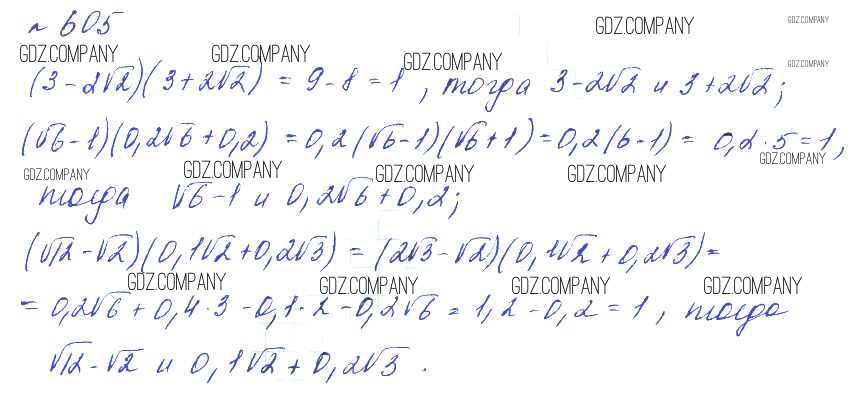 №605
GDZ.COMPANY GDZ.COMPANY
GDZ.COMPANY GDZ.COMPANY GDZ.COMPANY GDZ.COMPANY
(3-2√2)(3+2√2) = 9-8=1, тогда 3-2√2 и 3+2√2;
(√6-1)(0,2√6+0,2) = 0,2(√6-1)(√6+1)=0,2(6-1) = 0,2·5=1,
GDZ.COMPANY GDZ.COMPANY GDZ.COMPANY GDZ.COMPANY GDZ.COMPANY
тогда √6-1 и 0,2√6+0,2;
(√12-√2)(0,1√2+0,2√3) = (2√3-√2)(0,1√2+0,2√3)=
GDZ.COMPANY GDZ.COMPANY GDZ.COMPANY GDZ.COMPANY
= 0,2√6+0,4·3-0,1·2-0,2√6 = 1,2-0,2=1, тогда
√12-√2 и 0,1√2+0,2√3.